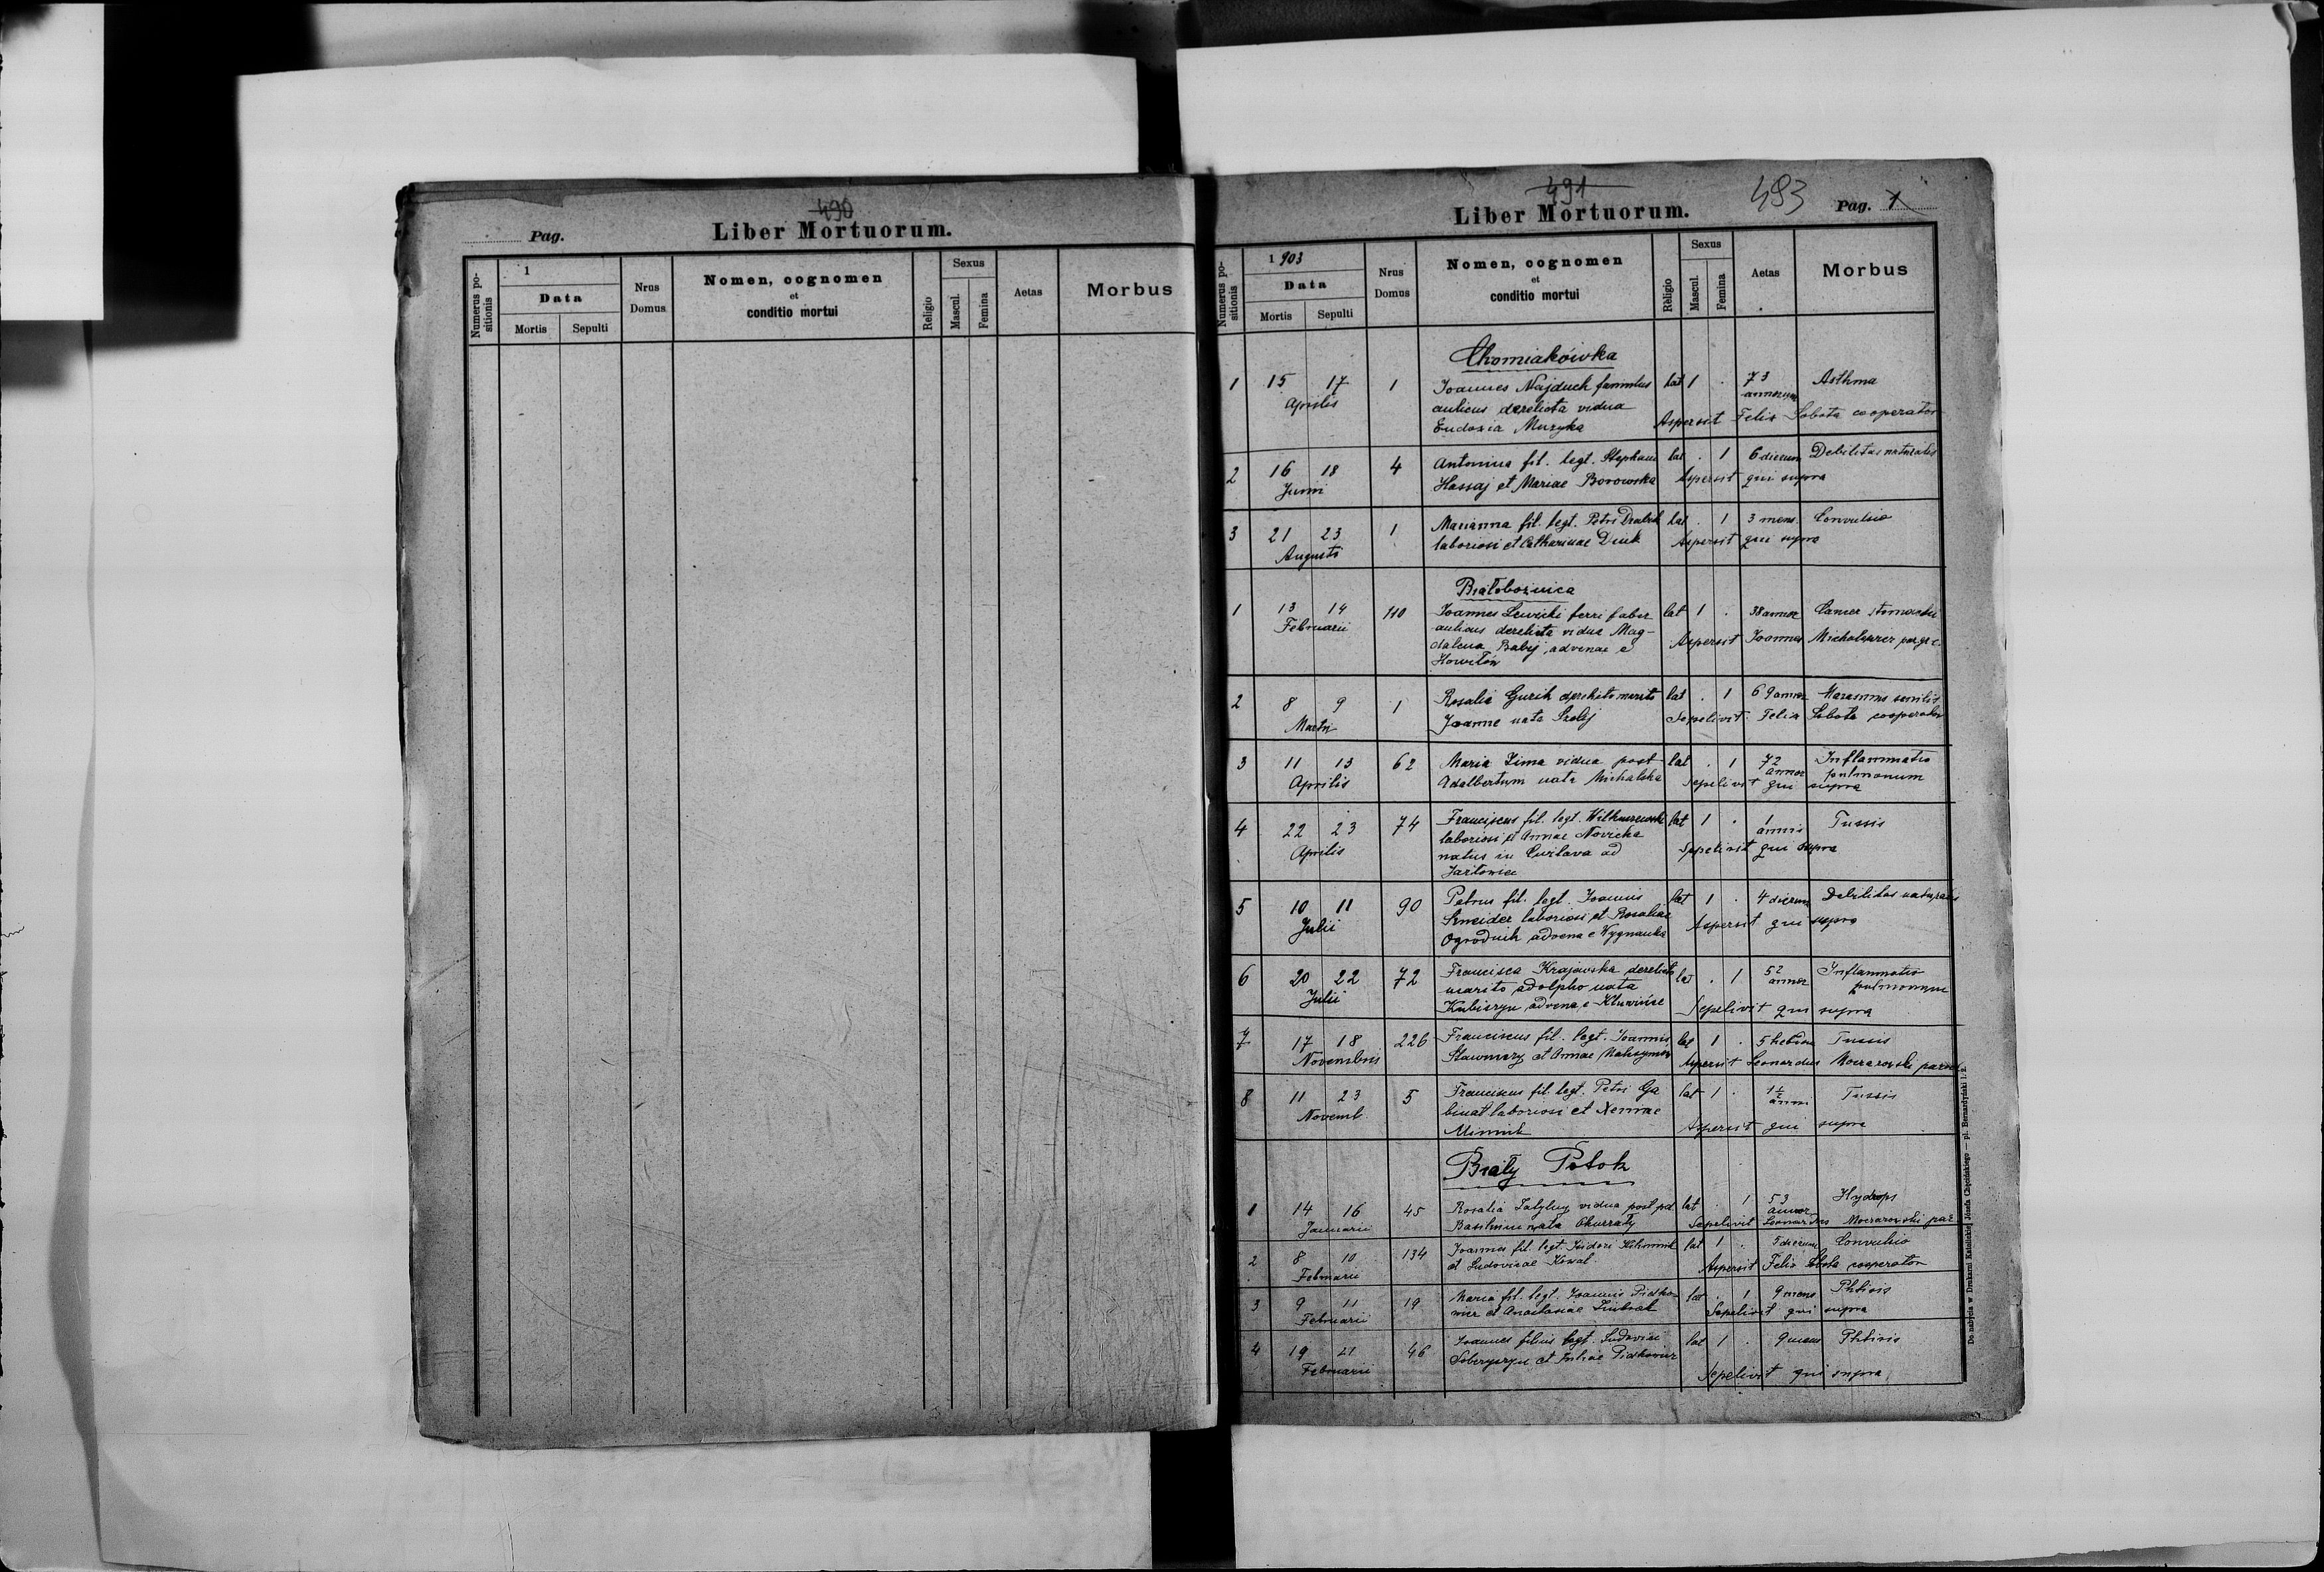 490
Pag.
Liber Mortuorum.
Numerus positionis
1
Data
Mortis
Sepulti
Nrus Domus
Nomen, cognomen
et
conditio mortui
Religio
Sexus
Mascul.
Femina
Aetas
Morbus
491
493
Liber Mortuorum.
Pag. 1
Numerus positionis
1903
Data
Mortis
Sepulti
Nrus Domus
Nomen, cognomen
et
conditio mortui
Religio
Sexus
Mascul.
Femina
Aetas
Morbus
Chomiakówka
1 15 17 1 Joannes Najduch famulus lat 1 . 73 Asthma
Aprilis aulicus derelicta vidua annorum
Eudoxia Muzyka Aspersit Felix Sobota cooperator
2 16 18 4 Antonina fil. legt. Stephani lat . 1 6 dierum Debilitas naturalis
Junii Hassaj et Mariae Borowska Aspersit qui supra
3 21 23 1 Marianna fil. legt. Petri lat . 1 3 mens. Convulsio
Augusti laboriosi et Catharinae Aspersit qui supra
Białobożnica
1 13 14 110 Joannes Lewicki ferri faber lat 1 . 38 annor Cancer stomachi
Februarii aulicus derelicta vidua Mag-
dalena Babij advenae e Aspersit Joannes
2 8 9 1 Rosalia Gurik derelicto marito lat . 1 69 annor Marasmus senilis
Martii Joanne nata Sepelivit Felix Sobota cooperator
3 11 13 62 Maria Zima vidua post lat . 1 72 Inflammatio
Aprilis Adalbertum nata Michalska annor pulmonum
Sepelivit qui supra
4 22 23 74 Franciscus fil. legt. lat 1 . 1 Tussis
Aprilis laboriosi et Annae Novicka anni
natus in ad Sepelivit qui supra
5 10 11 90 Petrus fil. legt. Joannis lat 1 . 4 dierum Debilitas naturalis
Julii Szneider laboriosi et Rosaliae
Ogrodnik advena e Wygnanka Aspersit qui supra
6 20 22 72 Francisca Krajewska derelicto lat . 1 52 Inflammatio
Julii marito Adolpho nata annor pulmonum
advena e Sepelivit qui supra
7 17 18 226 Franciscus fil. legt. Joannis lat 1 . 5 hebdom Tussis
Novembris et Annae Aspersit Leonardus
8 11 23 5 Franciscus fil. legt. Petri Ga lat 1 . 1½ Tussis
Novemb. laboriosi et anni
Aspersit qui supra
Biały Potok
1 14 16 45 Rosalia vidua post lat . 1 53 Hydrops
Januarii nata annor
Sepelivit Leonardus
2 8 10 134 Joannes fil. legt. Isidori lat 1 . 5 dierum Convulsio
Februarii et Ludovicae Kowal Aspersit Felix Sobota cooperator
3 9 11 19 Maria fil. legt. Joannis lat . 1 9 mens Phtisis
Februarii et Anastasiae Sepelivit qui supra
4 19 21 46 Joannes filius legt. Ludovici lat 1 . 9 mens Phtisis
Februarii et Juliae Sepelivit qui supra
Do nabycia w Drukarni Katolickiej Józefa Chęcińskiego — pl. Bernardyński l. 2.